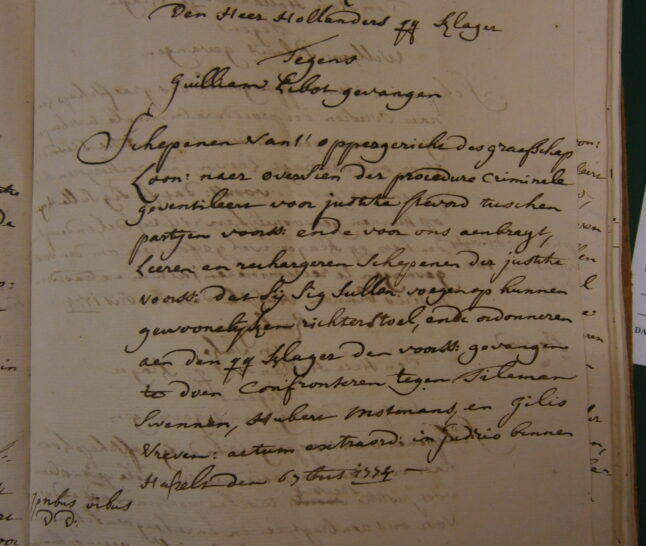 Den Heer Hollanders qq klager
Tegens
Guilliam Libot gevangen
Schepenen van t' oppergerichte des graefschep
Loon: naer oversien der procedure Criminele
geventileert voor justitie tuschen
partijen voors: ende voor ons aenbragt,
Leeren en rechargeren schepenen der justitie
voors: dat sij sig sullen voegen op hunnen
gewoonelijken richterstoel, ende ordonneren
aen den qq klager den voors: gevangen
te doen Confronteren tegen Tileman
Swennen, Hubert Motmans, en Gilis
Vreven: actum extraord: in judicio binnen
Hasselt den 1774